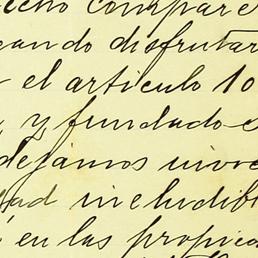 echo compare
cando disfrutar
el articulo 10
, y fundado e
dejamos invoc
dad ineludibl
en las propie